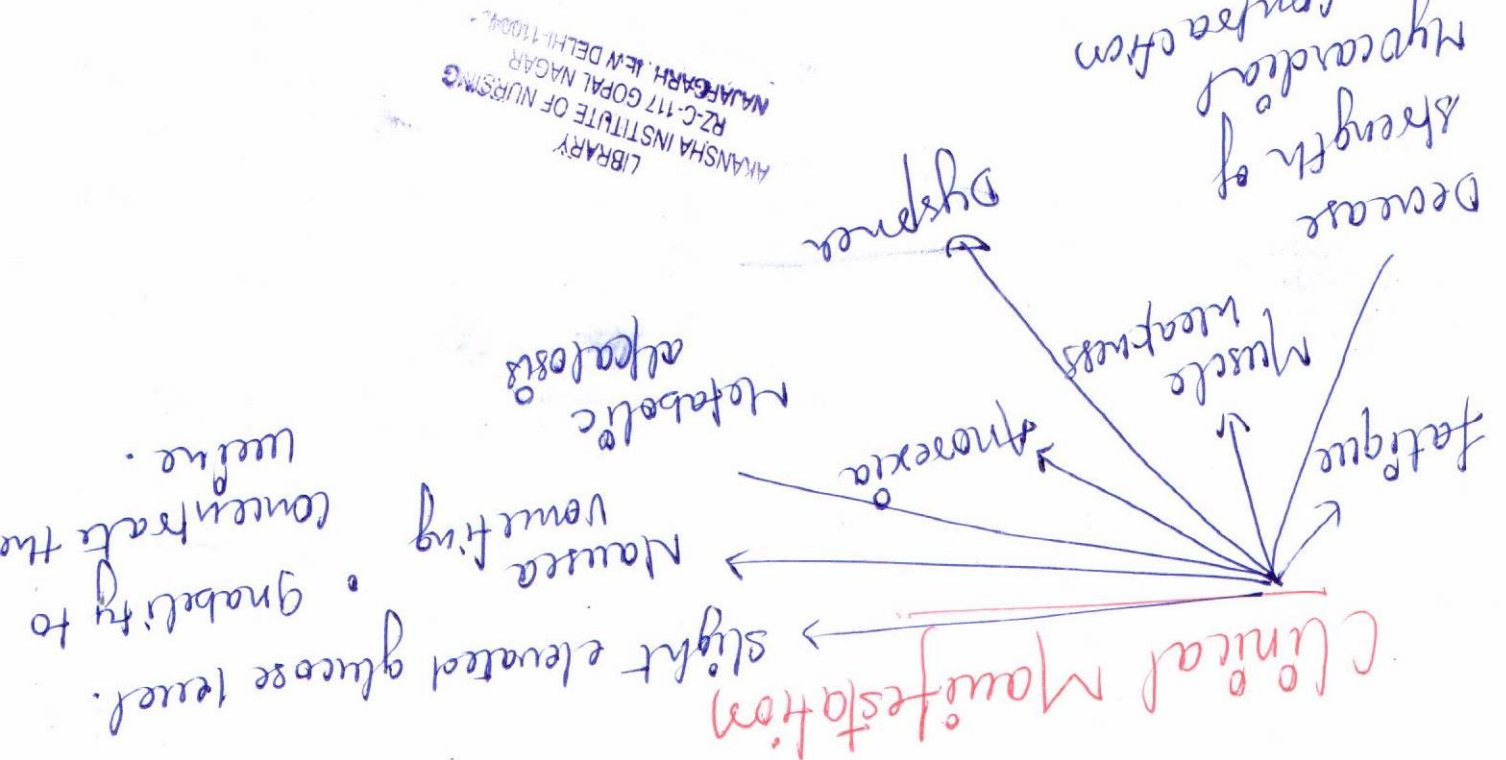 Clinical Manifestation
Slight elevated glucose level.
• Inability to
concentrate the
urine.
Nausea
vomiting
Metabolic
alkalosis
Anorexia
Dyspnea
Muscle
weakness
Fatigue
Decrease
strength of
Myocardial
contraction
LIBRARY
AKANSHA INSTITUTE OF NURSING
RZ-C-117 GOPAL NAGAR
NAJAFGARH, NEW DELHI-110043